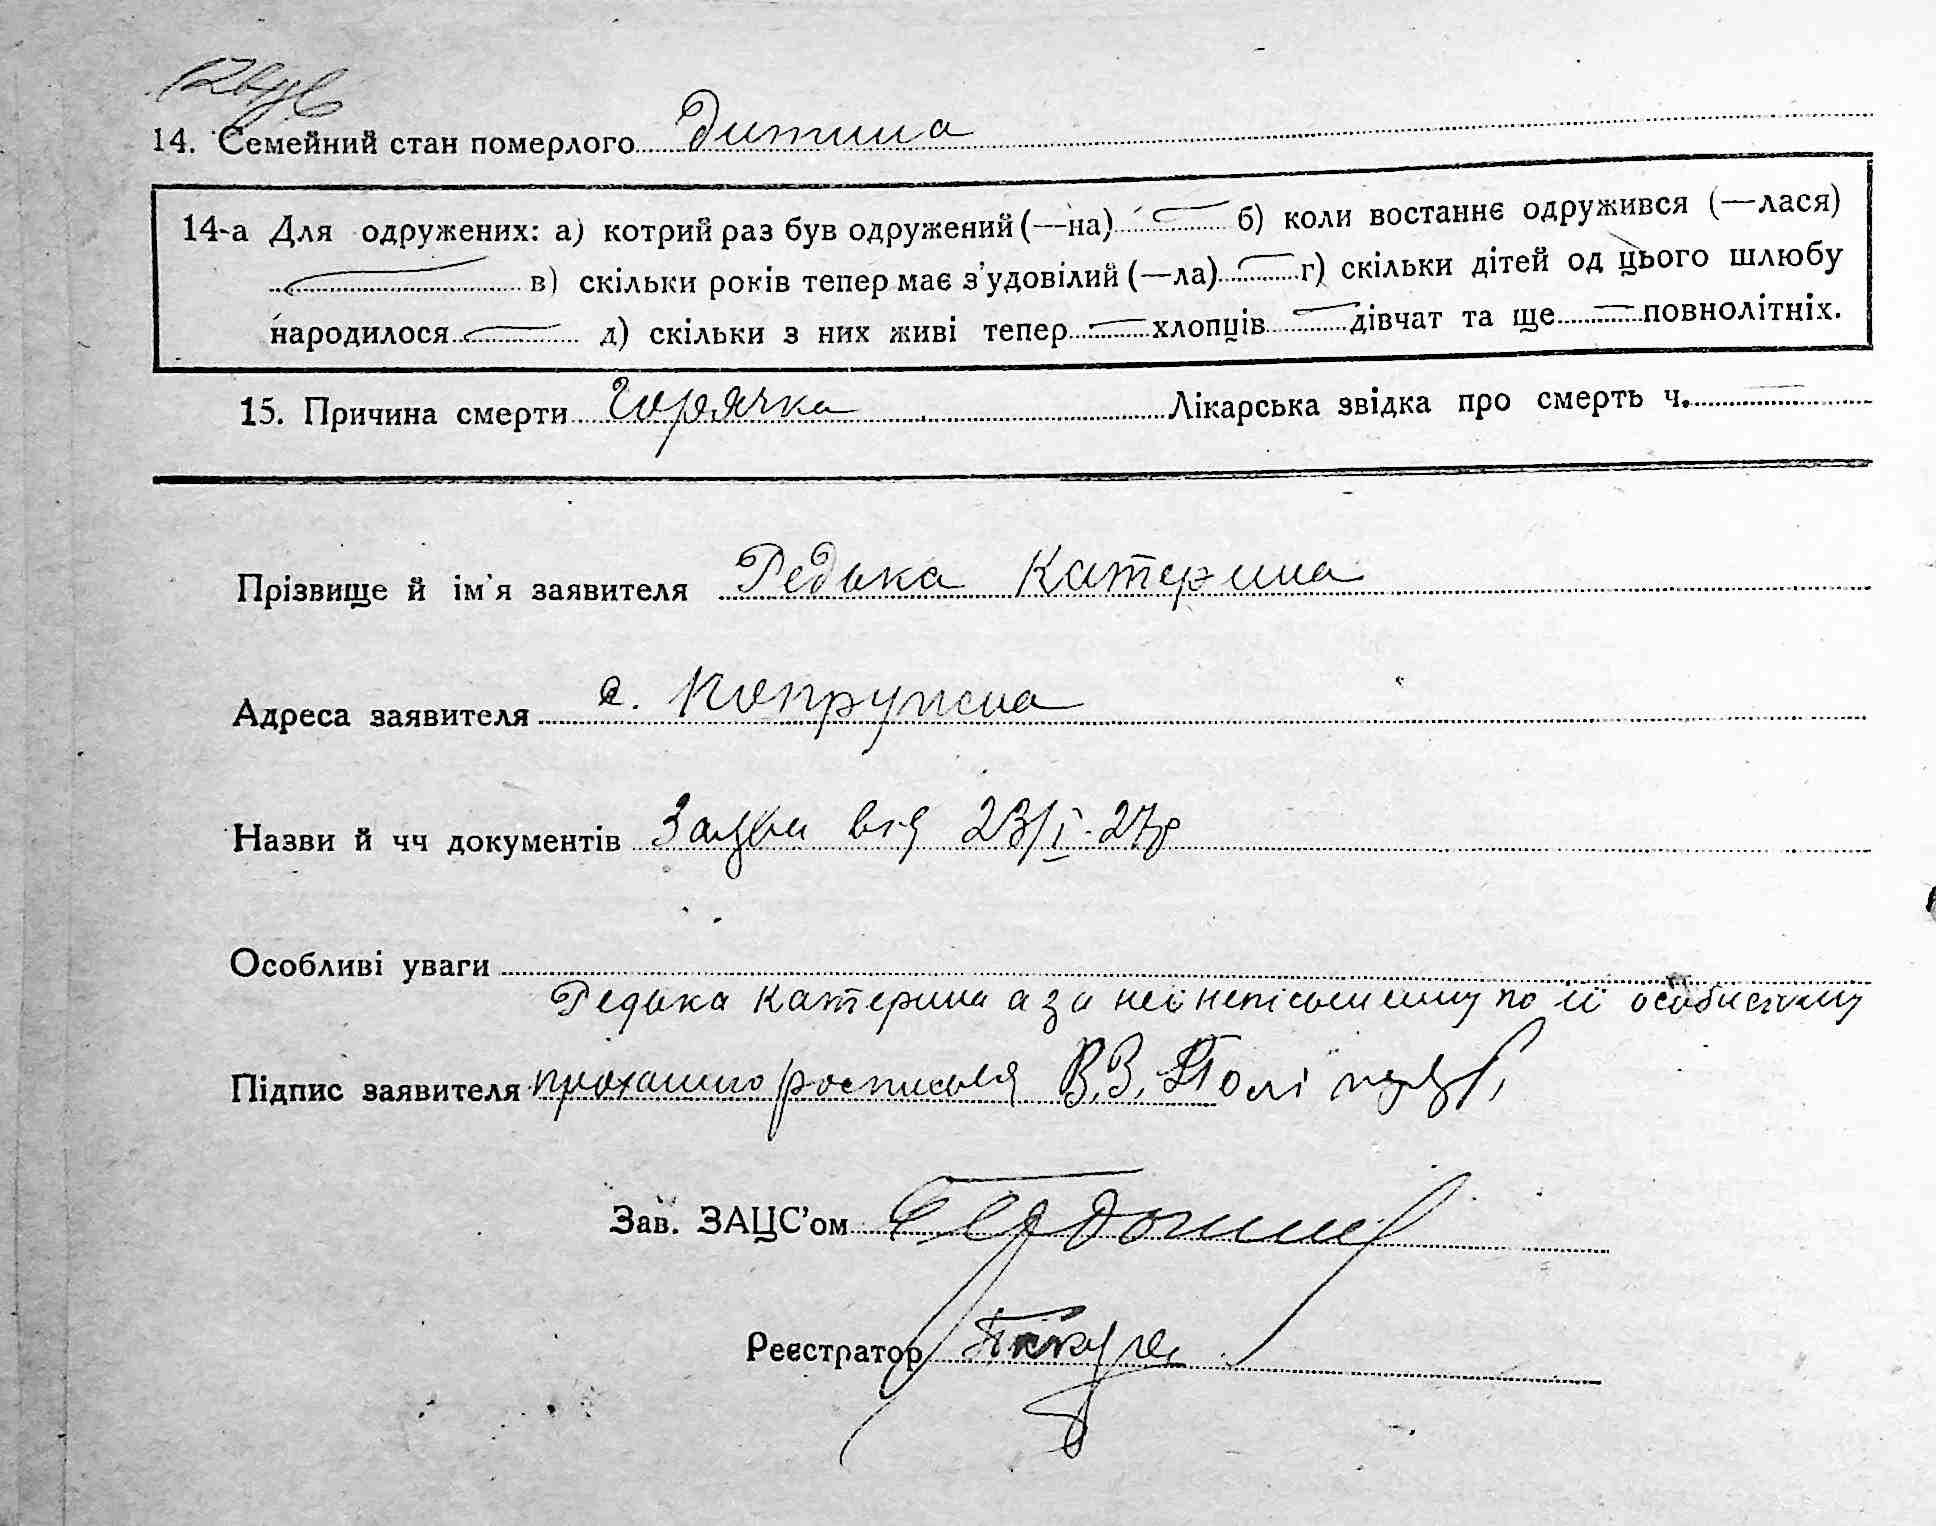 14. Семейний стан померлого Дитина
14-а Для одружених: а) котрий раз був одружений (—на) — б) коли востаннє одружився (—лася)
— в) скільки років тепер має з'удовілий (—ла) — г) скільки дітей од цього шлюбу
народилося — д) скільки з них живі тепер — хлопців — дівчат та ще — повнолітніх.
15. Причина смерти Горячка Лікарська звідка про смерть ч. —
Прізвище й ім'я заявителя Редька Катерина
Адреса заявителя с. Попружна
Назви й чч документів Заява від 23/I-27р
Особливі уваги
Редька Катерина а за неї неписьменну по її особистому
Підпис заявителя проханню росписався В.З.
Зав. ЗАЦС'ом
Реєстратор